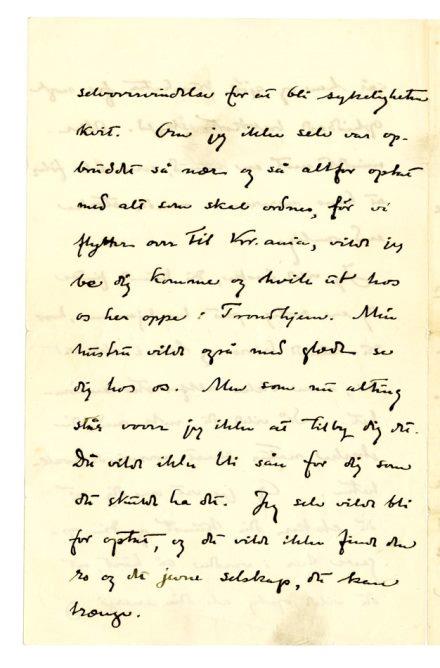 selvovervindelse for at bli sykeligheten
kvit. Om jeg ikke selv var op-
brudt så nær og så altfor optat
med alt som skal ordnes, før vi
flytter over til Kr.ania, vilde jeg
be dig komme og hvile ut hos
os her oppe i Trondhjem. Min
hustru vilde også med glæde se
dig hos os. Men som nu alting
står vover jeg ikke at tilby dig det.
Det vilde ikke bli sån for dig som
det skulde ha det. Jeg selv vilde bli
for optat, og du vilde ikke finde den
ro og det jevne selskap, du kan
trænge.